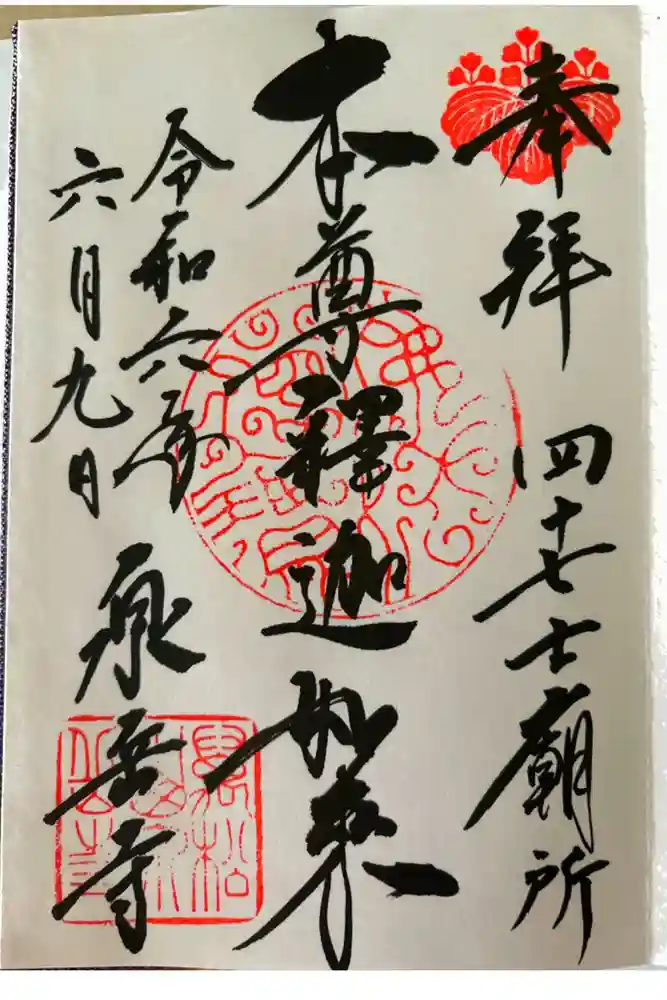 奉拜 四十七士廟所
本尊釋迦如来
令和六年
六月九日
泉岳寺